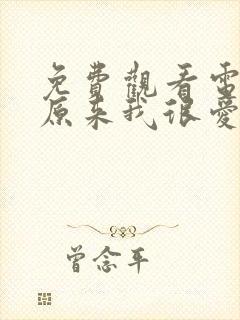 免費觀看電
原來我很愛
曾念平